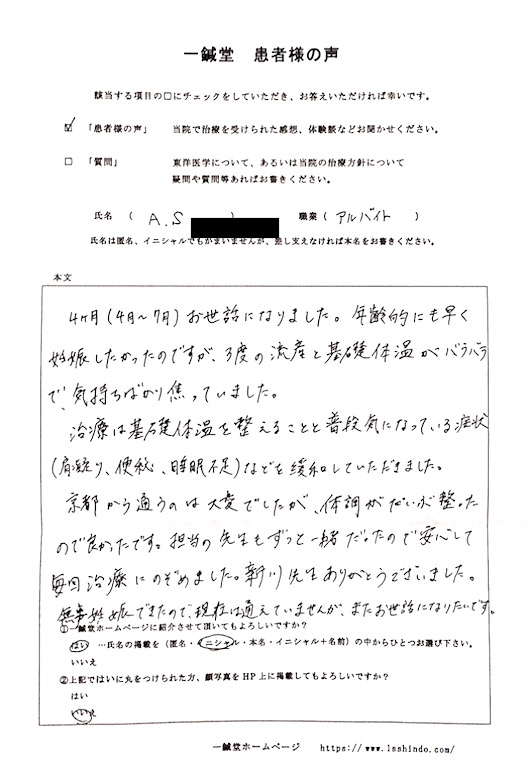 一鍼堂　患者様の声
該当する項目の□にチェックをしていただき、お答えいただければ幸いです。
☑ 「患者様の声」 当院で治療を受けられた感想、体験談などお聞かせください。
□ 「質問」 東洋医学について、あるいは当院の治療方針について
疑問や質問等あればお書きください。
氏名 （ A.S ） 職業（ アルバイト ）
氏名は匿名、イニシャルでもかまいませんが、差し支えなければ本名をお書きください。
本文
4ヶ月(4月〜7月)お世話になりました。年齢的にも早く
妊娠したかったのですが、3度の流産と基礎体温がバラバラ
で、気持ちばかり焦っていました。
治療は基礎体温を整えることと普段気になっている症状
(肩凝り、便秘、睡眠不足)などを緩和していただきました。
京都から通うのは大変でしたが、体調がだいぶ整ったので良かったです。担当の先生もずっと一緒だったので安心して
毎回治療にのぞめました。新川先生ありがとうございました。
無事妊娠できたので、現在は通えていませんが、またお世話になりたいです。
①一鍼堂ホームページに紹介させて頂いてもよろしいですか？
はい …氏名の掲載を（匿名・イニシャル・本名・イニシャル＋名前）の中からひとつお選び下さい。
いいえ
②上記ではいに丸をつけられた方、顔写真をHP上に掲載してもよろしいですか？
はい
いいえ
一鍼堂ホームページ　https://www.isshindo.com/